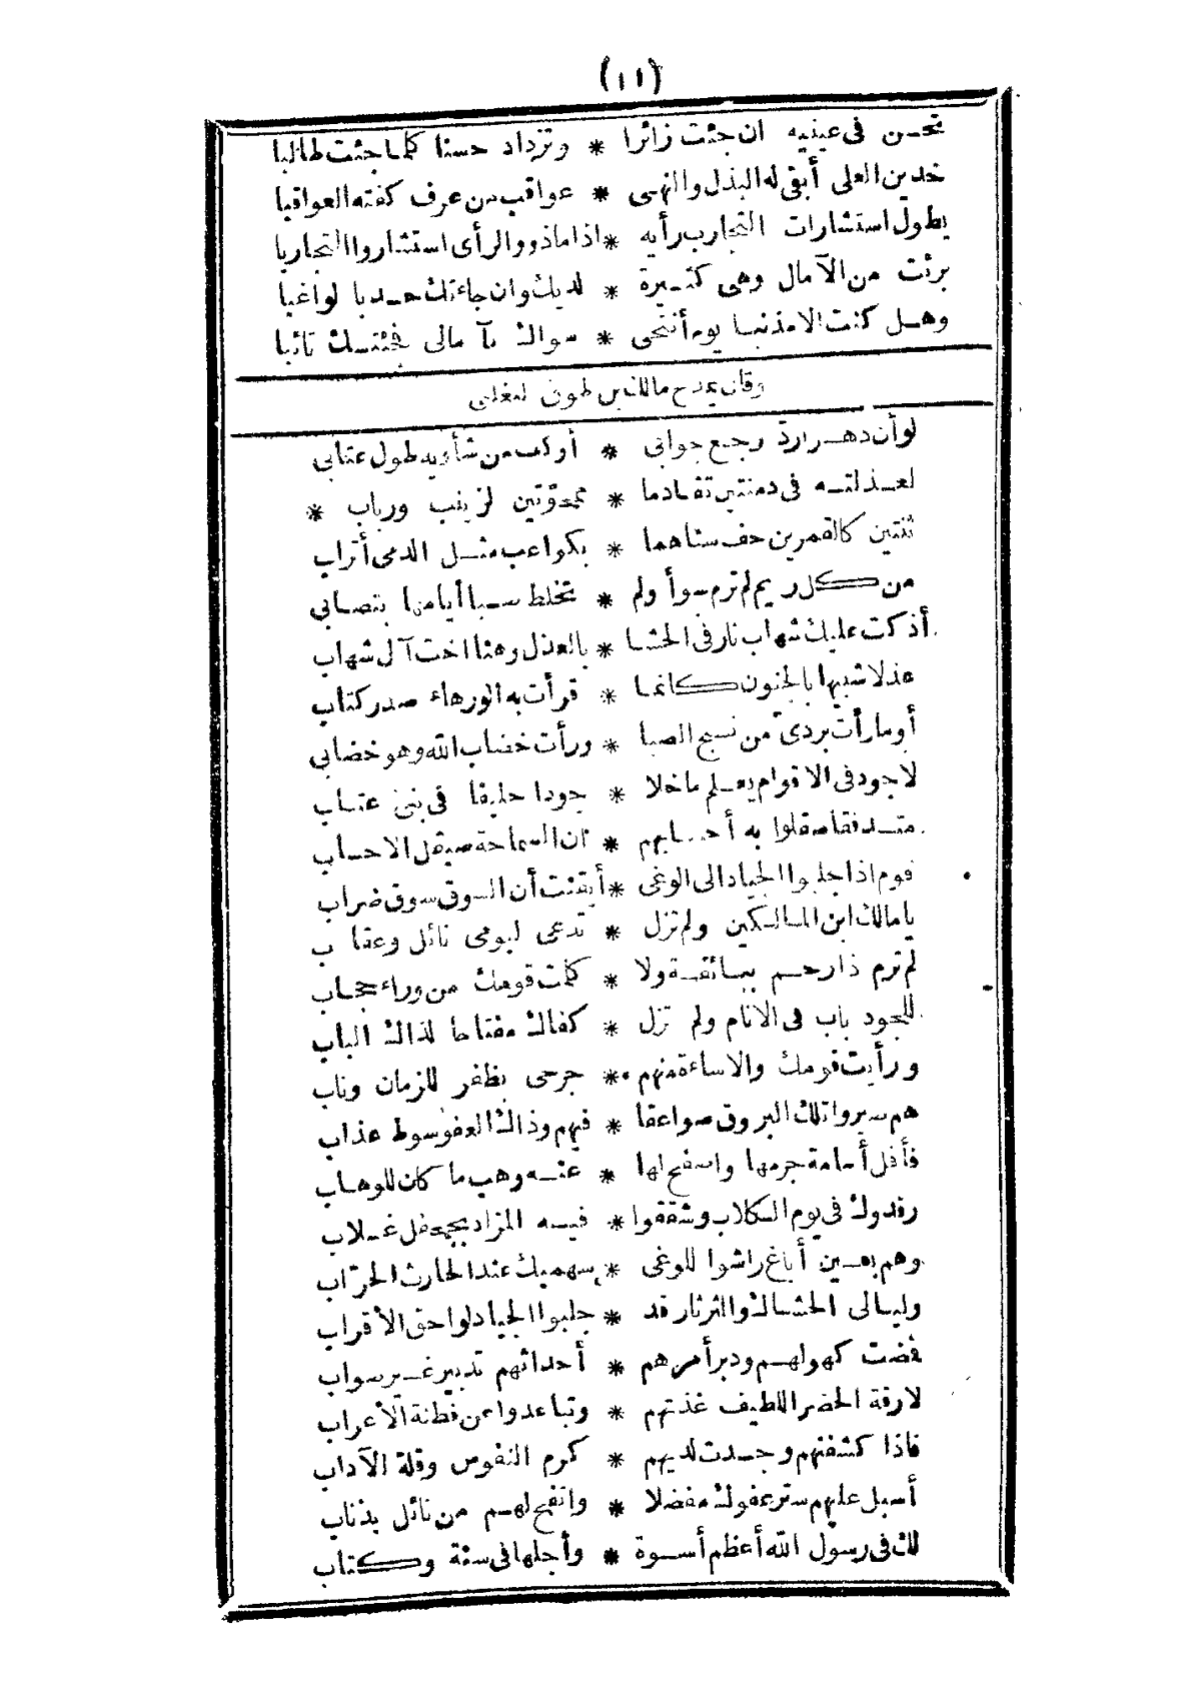 (١١)
تحسن فى عينيه ان جئت زائرا * وتزداد حسنا كلما جئت طالبا
خدين العلى أبقى له البذل والنهى * عواقب من عرف كفته العواقبا
يطول استشارات التجارب رأيه * اذا ماذوو الرأى استشاروا التجاربا
برئت من الآمال وهى كثيرة * لديك وان جاءتك حدبا لواغبا
وهل كنت الا مذنبا يوم أنتحى * سواك بآ مالى فجئتك تائبا
وقال يمدح مالك بن طوق التغلبى
لو أن دهرا ردّ رجع جوابى * أو كف من شأويه طول عتابى
لعذلته فى دمنتين تقادما * ممحوّتين لزينب ورباب *
ثنتين كالقمرين حف سناهما * بكواعب مثل الدمى أتراب
من كل ريم لم ترم سوأ ولم * تخلط صبا أيامها بتصابى
أذكت عليك شهاب نار فى الحشا * بالعذل وهنا اخت آل شهاب
عذلا شبيها بالجنون كانما * قرأت به الورهاء صدر كتاب
أوما رأت بردىّ من نسج الصبا * ورأت خضاب الله وهو خضابى
لا جود فى الاقوام يعلم ما خلا * جودا حليفا فى بنى عتاب
متدفقا صقلوا به أحسابهم * ان السماحة صيقل الاحساب
قوم اذا جلبوا الجياد الى الوغى * أيقنت أن السوق سوق ضراب
يا مالك ابن المالكين ولم تزل * تدعى ليومى نائل وعقا ب
لم ترم ذا رحم ببائقة ولا * كلمت قومك من وراء حجاب
للجود باب فى الانام ولم تزل * كفاك مفتاحا لذاك الباب
ورأيت قومك والاساءة منهم * جرحى بظفر للزمان وناب
هم صيروا تلك البروق صواعقا * فيهم وذاك العفو سوط عذاب
فأقل أسامة جرمها واصفح لها * عنه وهب ما كان للوهاب
رفدوك فى يوم الكلاب وشققوا * فيه المزاد بجحفل غلاب
وهم بعين أباغ راشوا للوغى * سهميك عند الحارث الحرّاب
وليالى الحشاك والثرثار قد * جلبوا الجياد لواحق الأقراب
فضت كهولهم ودبر أمرهم * أحداثهم تدبير غير صواب
لا رقة الحضر اللطيف غذتهم * وتباعدوا عن فطنة الأعراب
فاذا كشفتهم وجدت لديهم * كرم النفوس وقلة الآداب
أسبل عليهم ستر عفوك مفضلا * وانفح لهم من نائل بذناب
لك فى رسول الله أعظم أسوة * وأجلها فى سنة وكتاب